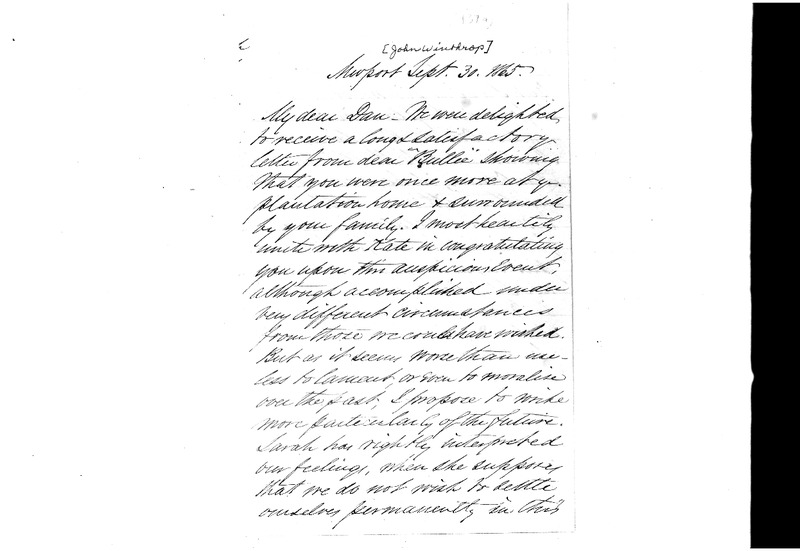 [John Winthrop]
Newport Sept. 30. 1865.
My dear Dan - We were delighted
to receive a long & satisfactory
letter from dear "Billie" showing
that you were once more at yr.
plantation home & surrounded
by your family. I most heartily
unite with Kate in congratulating
you upon this auspicious Event,
although accomplished under
very different circumstances
from those we could have wished.
But as it seems worse than use-
less to lament, or even to moralise
over the past, I propose to write
more particularly of the future.
Sarah has rightly interpreted
our feelings, when she supposes
that we do not wish to settle
ourselves permanently in this